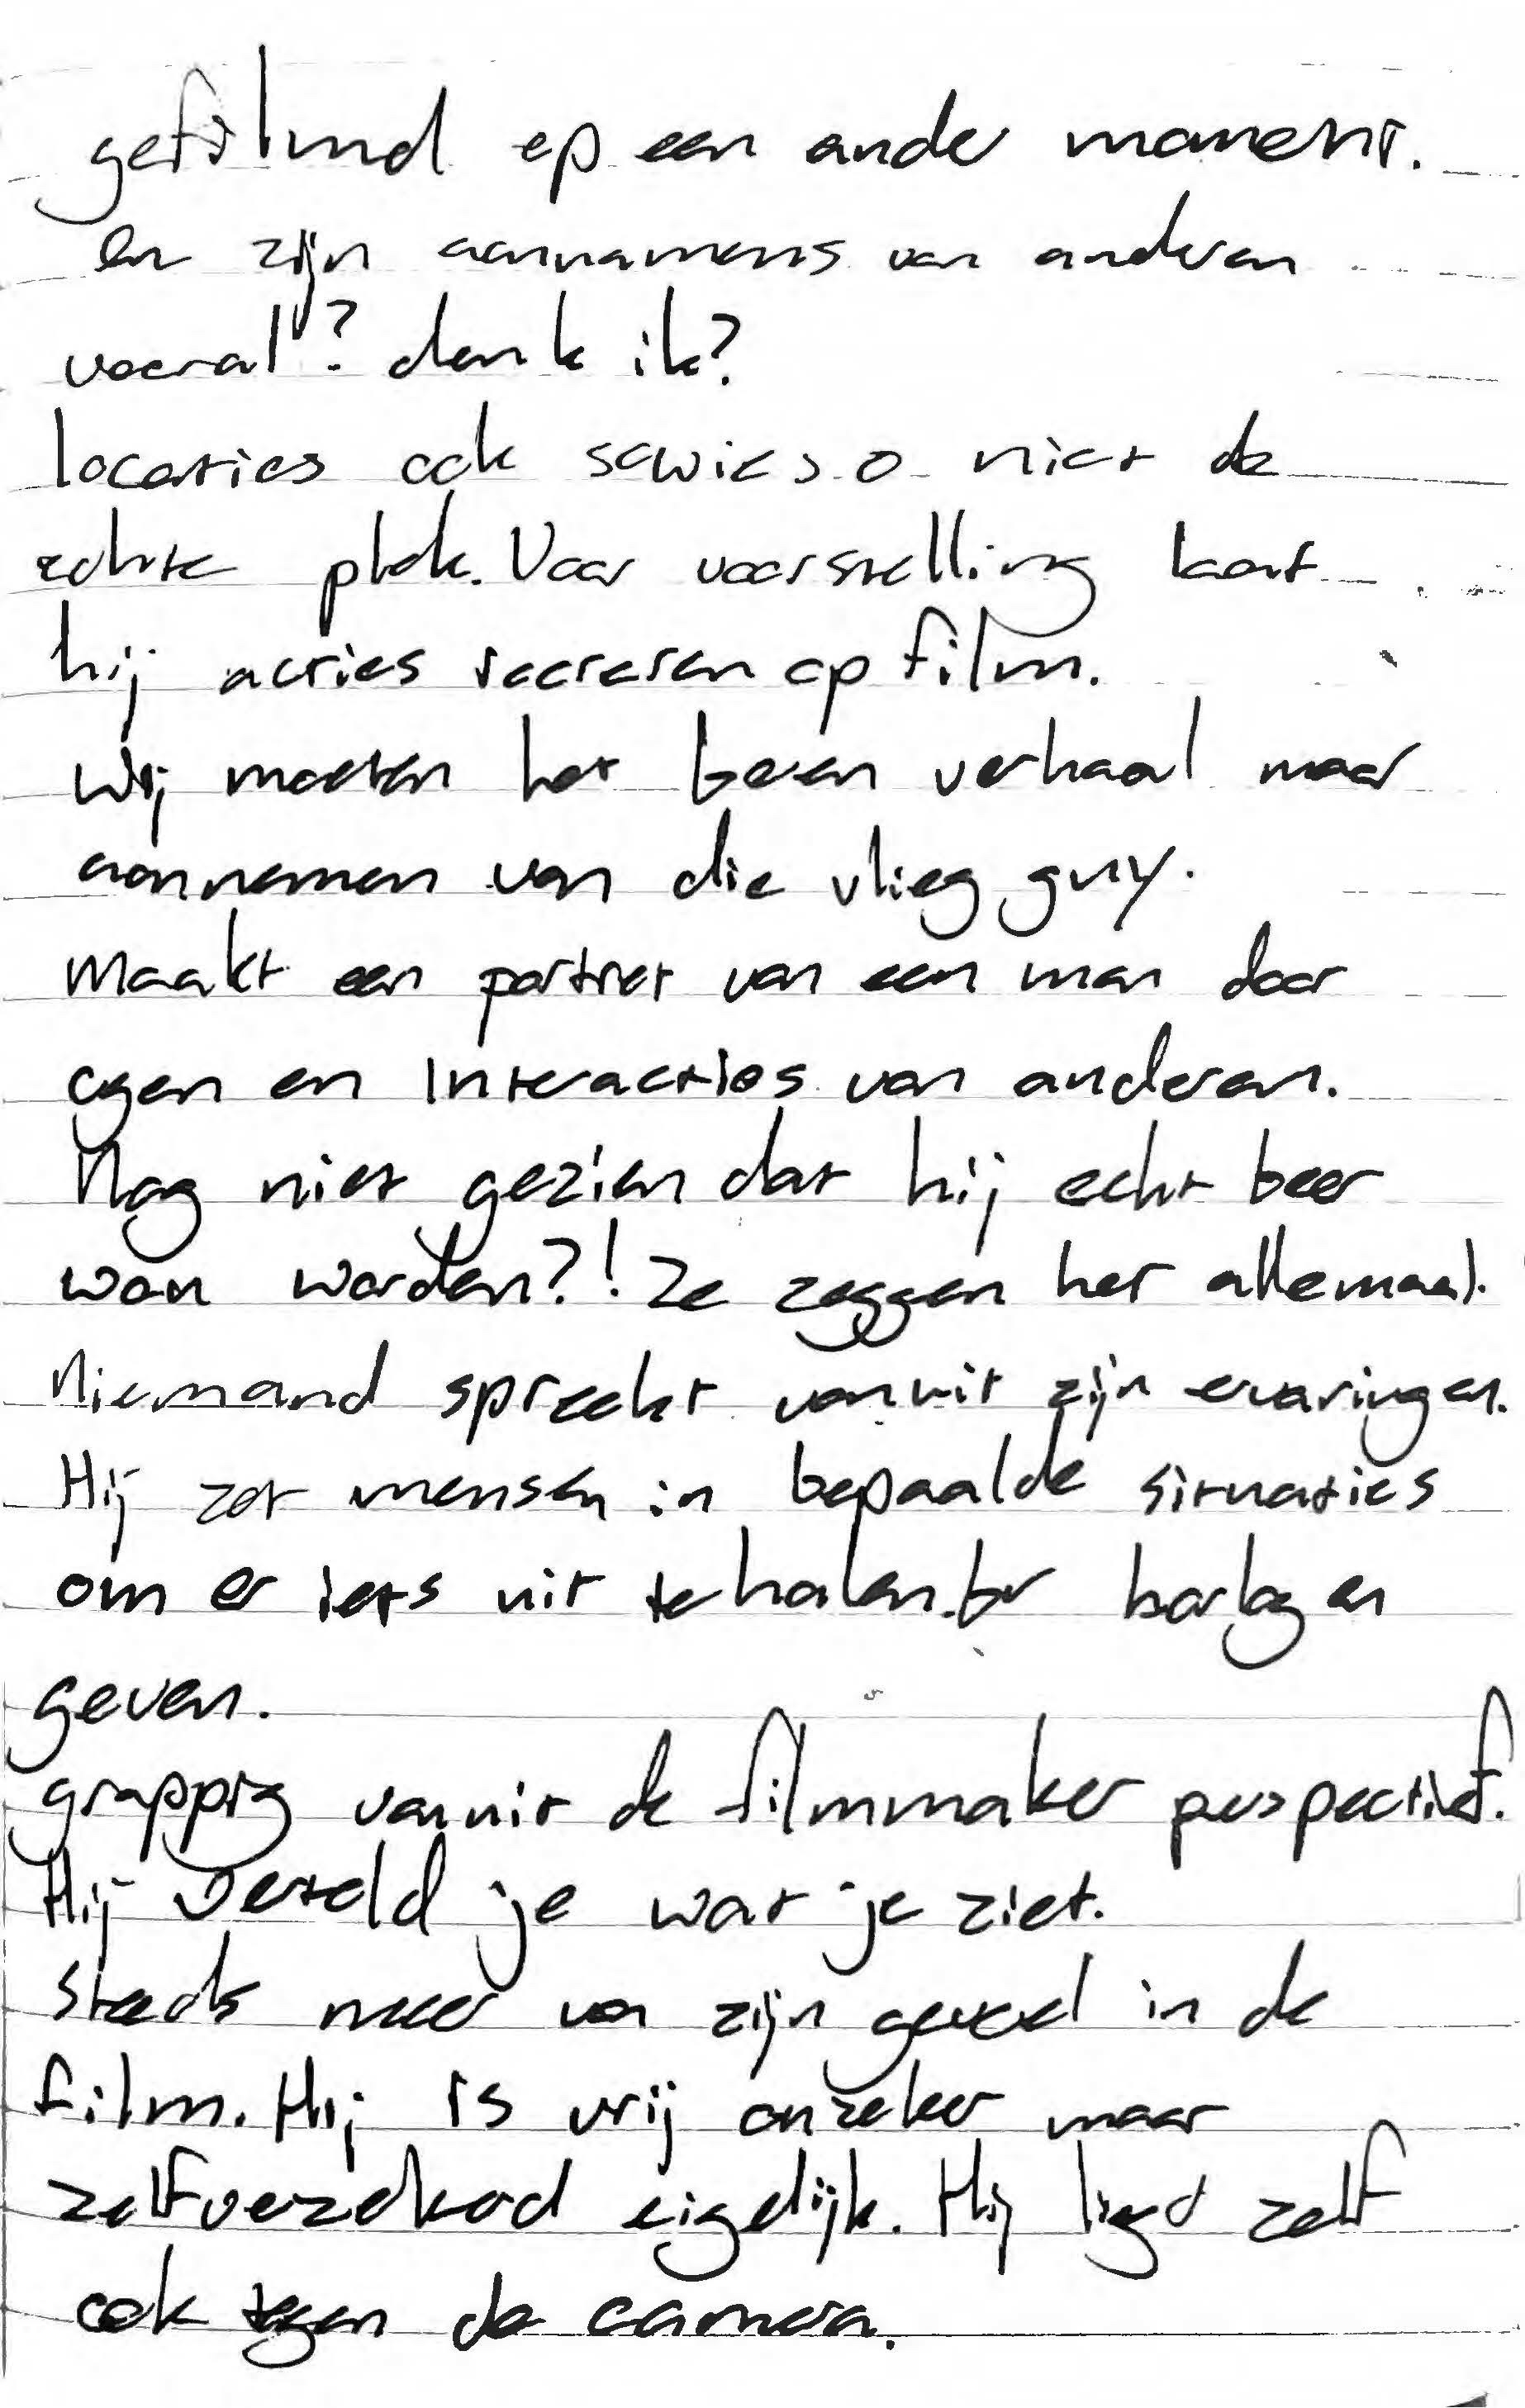 gefilmd op een ander moment.
en zijn aannamens van anderen
vooral? denk ik?
locaties ook sowieso niet de
echte plek. Voor voorstelling laat
hij acties op film.
Wij moeten het beren verhaal maar
aannemen van die vlieg guy.
Maakt een portret van een man door
ogen en interacties van anderen.
Nog niet gezien dat hij echt beer
wou worden?! Ze zeggen het allemaal.
Niemand spreekt vanuit zijn ervaringen.
Hij zet mensen in bepaalde situaties
om er iets uit te halen. bv horloge
geven.
grappig vanuit de filmmaker perspectief.
Hij verteld je wat je ziet.
Steeds meer van zijn gevoel in de
film. Hij is vrij onzeker maar
zelfverzekerd eigelijk. Hij liegd zelf
ook tegen de camera.